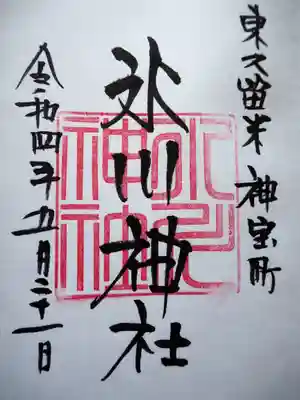 東久留米 神宝町
氷川神社
令和四年五月二十一日